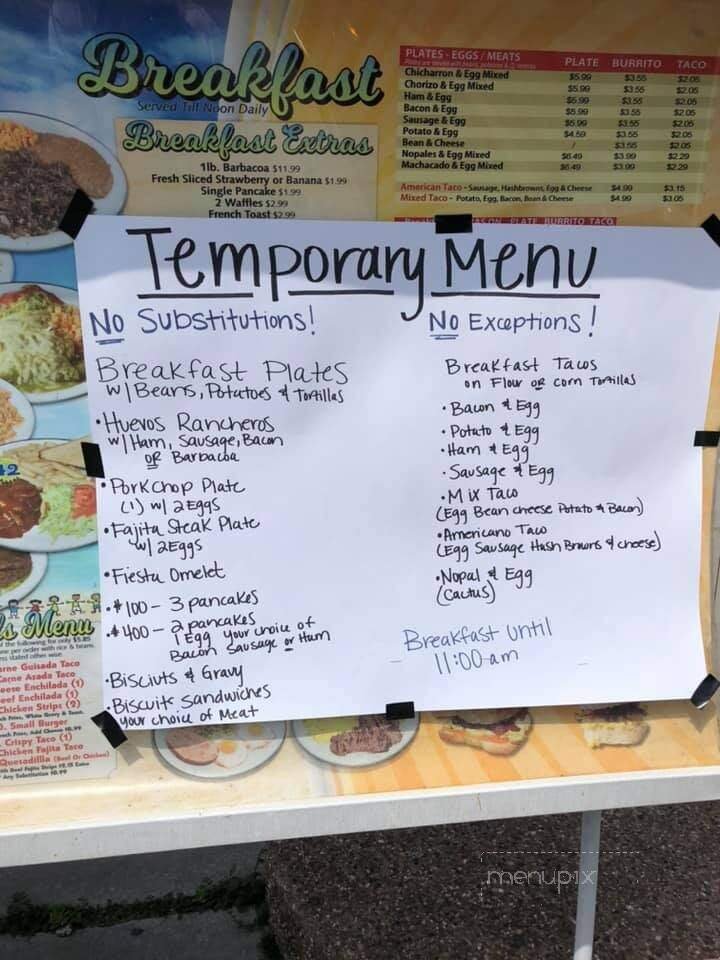 Breakfast
Served Till Noon Daily
Breakfast Extras
1lb. Barbacoa $11.99
Fresh Sliced Strawberry or Banana $1.99
Single Pancake $1.99
2 Waffles $2.99
French Toast $2.99
PLATES - EGGS / MEATS PLATE BURRITO TACO
Chicharron & Egg Mixed $5.99 $3.55 $2.05
Chorizo & Egg Mixed $5.99 $3.55 $2.05
Ham & Egg $5.99 $3.55 $2.05
Bacon & Egg $5.99 $3.55 $2.05
Sausage & Egg $5.99 $3.55 $2.05
Potato & Egg $4.59 $3.55 $2.05
Bean & Cheese / $3.55 $2.05
Nopales & Egg Mixed $6.49 $3.99 $2.29
Machacado & Egg Mixed $6.49 $3.99 $2.29
American Taco - Sausage, Hashbrowns, Egg & Cheese $4.99 $3.15
Mixed Taco - Potato, Egg, Bacon, Bean & Cheese $4.99 $3.05
PLATE BURRITO TACO
Temporary Menu
No Substitutions!
Breakfast Plates
w/ Beans, Potatoes & Tortillas
• Huevos Rancheros
w/ Ham, Sausage, Bacon
OR Barbacoa
• Porkchop Plate
(1) w/ 2 Eggs
• Fajita Steak Plate
w/ 2 Eggs
• Fiesta Omelet
• $100 - 3 pancakes
• $400 - 2 pancakes
1 Egg your choice of
Bacon Sausage or Ham
• Bisciuts & Gravy
• Biscuit Sandwiches
your choice of Meat
No Exceptions!
Breakfast Tacos
on Flour OR corn Tortillas
• Bacon & Egg
• Potato & Egg
• Ham & Egg
• Sausage & Egg
• Mix Taco
(Egg Bean cheese Potato & Bacon)
• Americano Taco
(Egg Sausage Hash Browns & cheese)
• Nopal & Egg
(Cactus)
Breakfast Until
11:00 am
42
s Menu
Guisada Taco
Carne Asada Taco
Enchilada (1)
Beef Enchilada (1)
Chicken Strips (2)
Small Burger
Crispy Taco (1)
Chicken Fajita Taco
Quesadilla (Beef Or Chicken)
Any Substitution $0.99
menupix